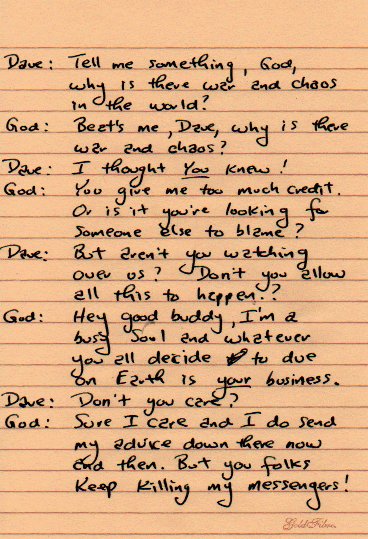 Dave: Tell me something, God,
why is there war and chaos
in the world?
God: Beat's me, Dave, why is there
war and chaos?
Dave: I thought You knew!
God: You give me too much credit.
Or is it you're looking for
someone else to blame?
Dave: But aren't you watching
over us? Don't you allow
all this to happen.?
God: Hey good buddy, I'm a
busy Soul and whatever
you all decide to due
on Earth is your business.
Dave: Don't you care?
God: Sure I care and I do send
my advice down there now
and then. But you folks
Keep Killing my messengers!
Gold Fibre